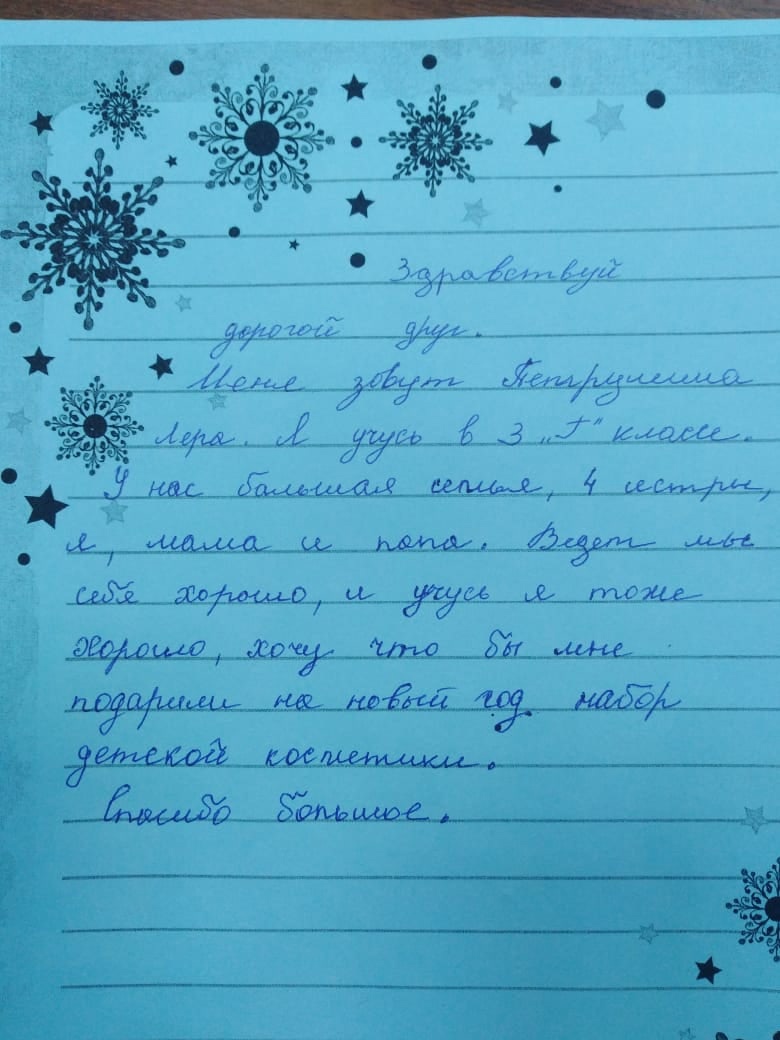 Здравствуй
дорогой друг.
Меня зовут
Лера. Я учусь в 3 „Г" классе.
У нас большая семья, 4 сестры,
я, мама и папа. Ведем мы
себя хорошо, и учусь я тоже
хорошо, хочу что бы мне
подарили на новый год набор
детской косметики.
Спасибо большое.